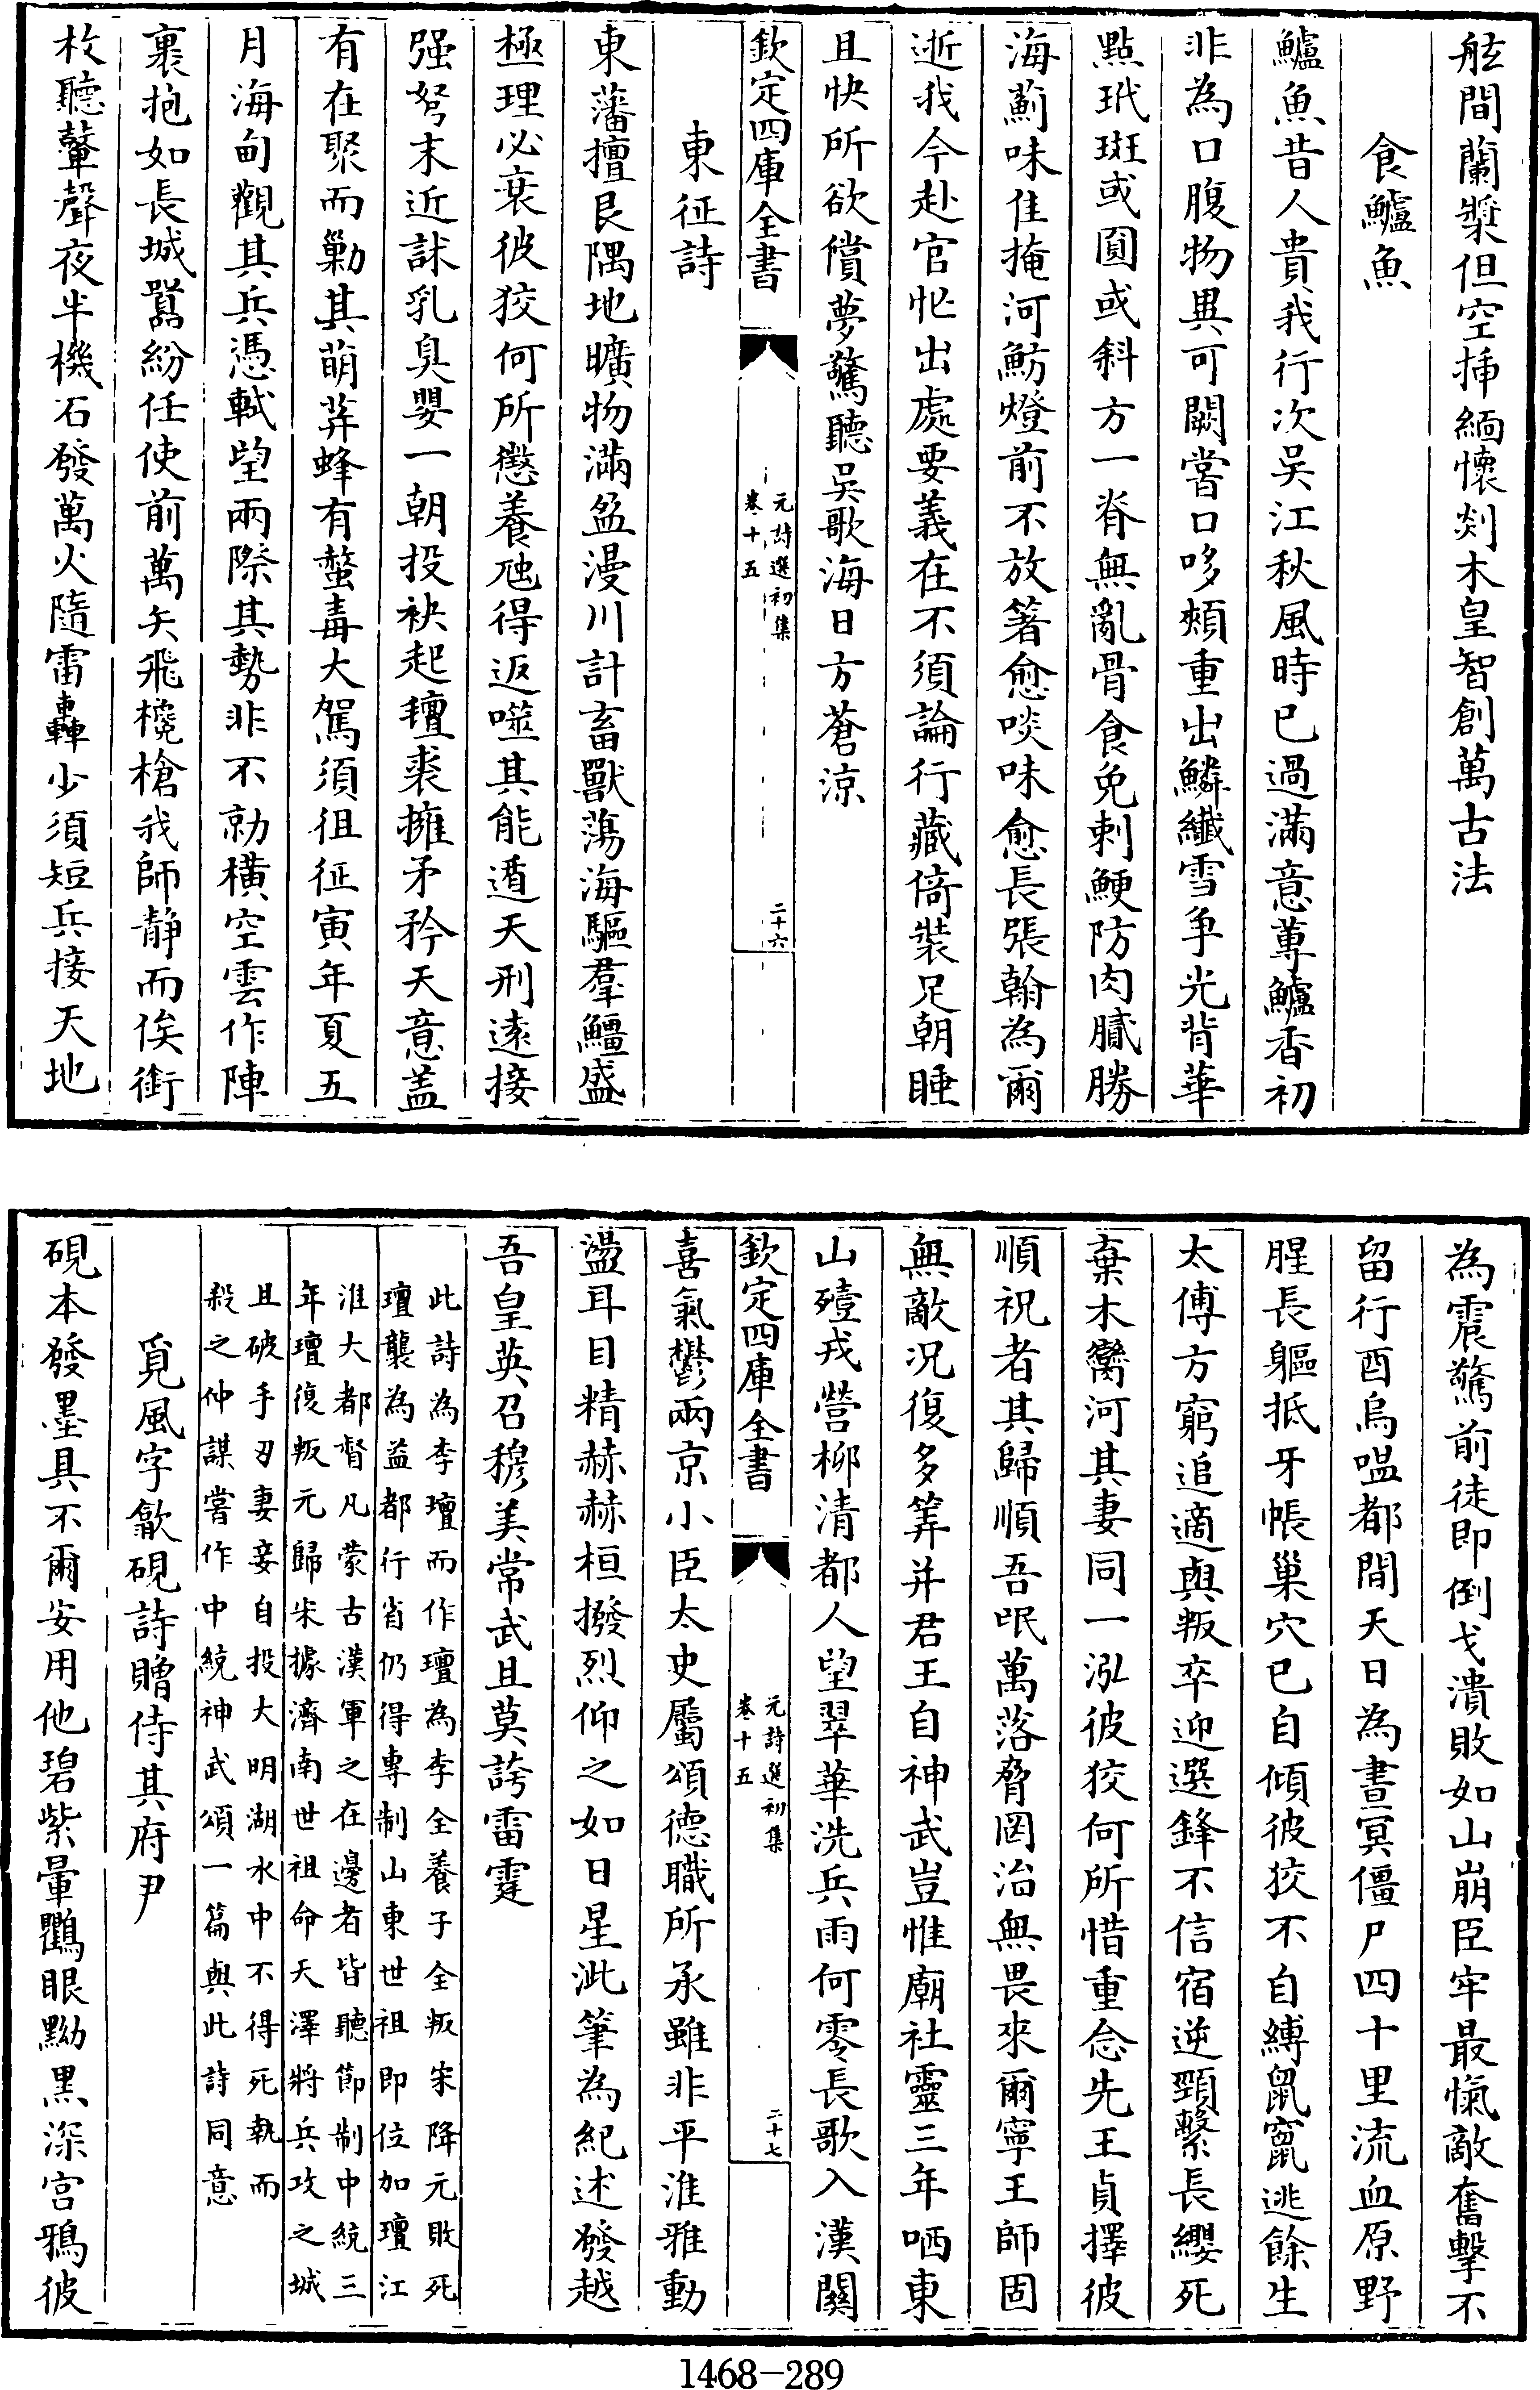 舷間蘭槳但空揷緬懷剡木皇智創萬古法
食鱸魚
鱸魚昔人貴我行次吳江秋風時已過滿意蓴鱸香初
非為口腹物異可闕嘗口哆頰重出鱗纎雪爭光背華
點玳斑或圓或斜方一脊無亂骨食免刺鯁防肉膩勝
海薊味佳掩河魴燈前不放箸愈啖味愈長張翰為爾
逝我今赴官忙出處要義在不須論行藏倚裝足朝睡
且快所欲償夢驚聽吳歌海日方蒼涼
欽定四庫全書
元詩選初集
卷十五
二十六
東征詩
東藩擅艮隅地曠物滿盈漫川計畜獸蕩海驅羣鱷盛
極理必衰彼狡何所懲養虺得返噬其能逭天刑逺接
强弩末近訹乳臭嬰一朝投袂起氊裘擁矛矜天意盖
有在聚而勦其萌荓蜂有螫毒大駕須徂征寅年夏五
月海甸觀其兵憑軾望兩際其勢非不勍橫空雲作陣
裹抱如長城嚣紛任使前萬矢飛欃槍我師静而俟銜
枚聽鼙聲夜半機石發萬火隨雷轟少須短兵接天地
為震驚前徒即倒戈潰敗如山崩臣牢最愾敵奮擊不
留行酉烏嗢都間天日為晝冥僵尸四十里流血原野
腥長軀抵牙帳巢穴已自傾彼狡不自縛鼠竄逃餘生
太傅方窮追適與叛卒迎選鋒不信宿逆頸繫長纓死
棄木臠河其妻同一泓彼狡何所惜重念先王貞擇彼
順祝者其歸順吾氓萬落脅罔治無畏來爾寧王師固
無敵况復多筭并君王自神武豈惟廟社靈三年哂東
山殪戎營柳清都人望翠華洗兵雨何零長歌入漢關
欽定四庫全書
元詩選初集
卷十五
二十七
喜氣鬱兩京小臣太史屬頌德職所承雖非平淮雅動
盪耳目精赫赫桓撥烈仰之如日星泚筆為紀述發越
吾皇英召穆美常武且莫誇雷霆
此詩為李璮而作璮為李全養子全叛宋降元敗死
璮襲為益都行省仍得專制山東世祖即位加璮江
淮大都督凡蒙古漢軍之在邊者皆聽節制中統三
年璮復叛元歸宋據濟南世祖命天澤將兵攻之城
且破手刃妻妾自投大明湖水中不得死執而
殺之仲謀嘗作中統神武頌一篇與此詩同意
覓風字歙硯詩贈侍其府尹
硯本發墨具不爾安用他碧紫暈鸜眼黝黑深宫鴉彼
1468-289